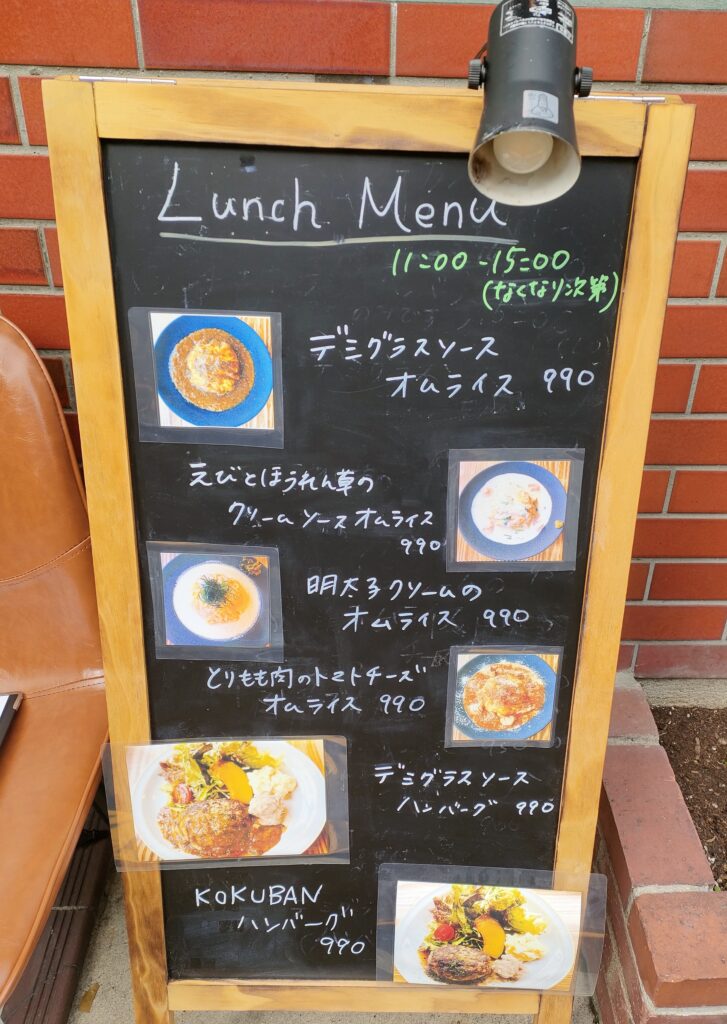 Lunch Menu
11:00 - 15:00
(なくなり次第)
デミグラスソース
オムライス 990
えびとほうれん草の
クリームソースオムライス
990
明太子クリームの
オムライス 990
とりもも肉のトマトチーズ
オムライス 990
デミグラスソース
ハンバーグ 990
KOKUBAN
ハンバーグ
990